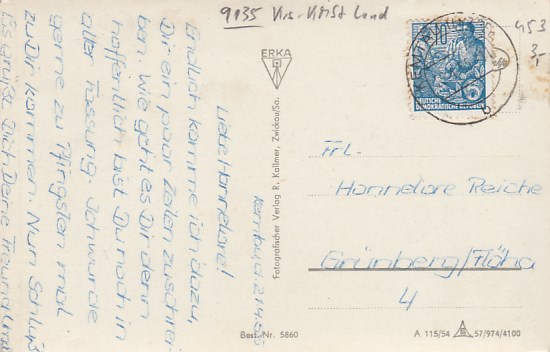 9135 Krs. Krist Land
453
3,-
10
DEUTSCHE
DEMOKRATISCHE REPUBLIK
ERKA
Liebe Hannelore!
Endlich komme ich dazu,
Dir ein paar Zeilen zu schrei-
ben. Wie geht es Dir denn
hoffentlich bist Du noch in
aller Fassung. Ich würde
gerne zu Pfingsten mal
zu Dir kommen. Nun Schluß
Es grüßt Dich Deine Freundin
Fotografischer Verlag R. Kallmer, Zwickau/Sa.
Frl.
Hannelore Reiche
Grünberg/Flöha
4
Best. Nr. 5860
A 115/54
57/974/4100